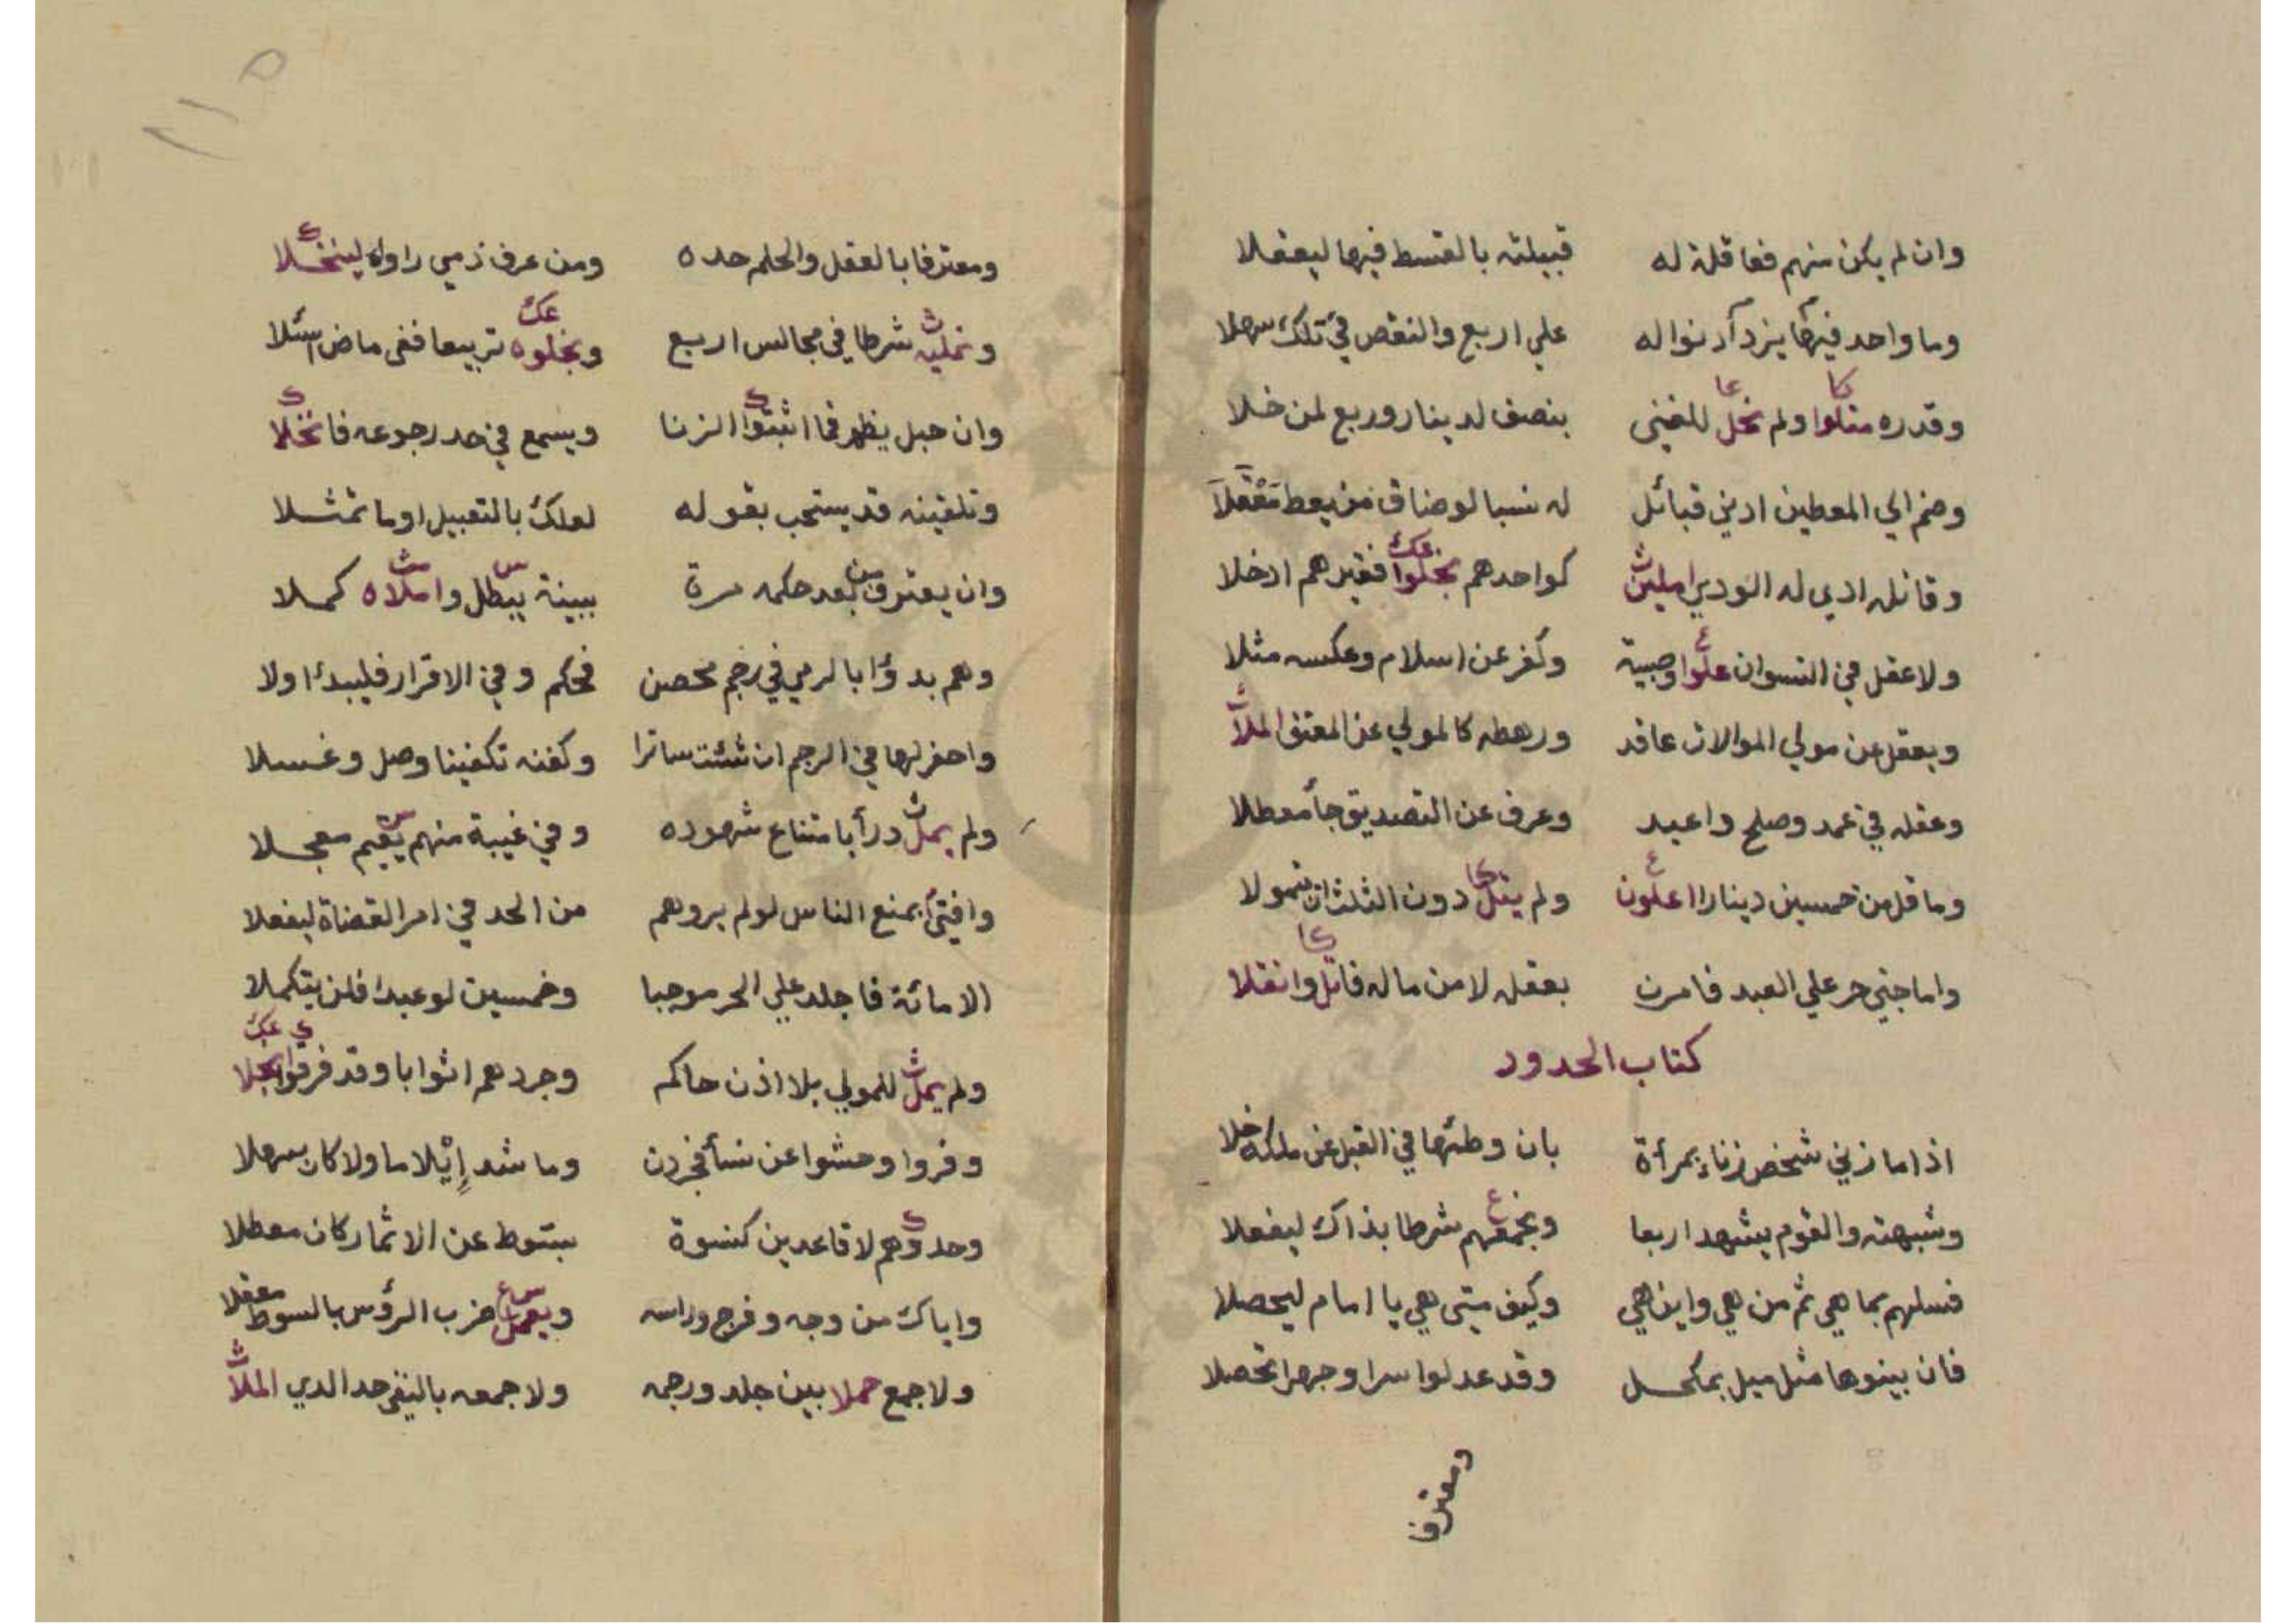 وان لم يكن منهم فعاقلة له قبيلته بالقسط فيها ليعقلا
وما واحد فيها يزد آدنواله علي اربع والنقص في تلك سهلا
وقدره مثلوا ولم نخل للغني بنصف لدينار وربع لمن خلا
وضم الي المعطين ادني قبائل له نسبا لو ضاق من يعط مَعْقَلاَ
وقاتله ادي له الودي امليث كواحدهم بخلوا فقيرهم ادخلا
ولا عقل في النسوان علوا وصبية وكفر عن اسلام وعكسه مثلا
ويعقل عن مولي الموالات عاقد ورهطه كالمولي عن المعتق الملأ
وعقله في عمد وصلح واعبد وعرف عن التصديق جأ معطلا
وما قل من خمسين دينارا اعلون ولم يتل دون الثلث ان تمولا
واما جني حر علي العبد فامرن بعقله لا من ماله فاتل وانقلا
كتاب الحدود
اذا ما زني شخص زناء بمرأة بان وطئها في القبل عن ملكه خلا
وشبهته والقوم يشهد اربعا وبجمعهم شرطا بذاك ليفعلا
فسلهم بما هي ثم من هي واين هي وكيف متي هي يا امام ليحصلا
فان بينوها مثل ميل بمكحل وقد عدلوا سرا وجهرا تحصلا
ومعترفا
١١٥
ومعترفا بالعقل والحلم حده ومن عرف ذمي راوه لينخلا
ونمليه شرطا في مجالس اربع وبخلوه تربيعا ففي ماض اسئلا
وان حبل يظهر فما اثبتوا الزنا ويسمع في حد رجوعه فانخلا
وتلقينه قد يستحب بقوله لعلك بالتقبيل اوما تمثلا
وان يعترف من بعد حكمه مرة ببينة يبطل واملاه كملا
وهم بدؤا بالرمي في رجم محصن فحكم وفي الاقرار فليبدئ اولا
واحفر لها في الرجم ان شئت ساترا وكفنه تكفينا وصل وغسلا
ولم يمل درأ بامتناع شهوده وفي غيبة منهم يقيم معجلا
وافتي بمنع الناس لو لم يروهم من الحد في امر القضاة ليفعلا
الا مائة فاجلد علي الحر موجبا وخمسين لو عبدا فلن يتكملا
ولم يمل للمولي بلا اذن حاكم وجردهم اثوابا وقد فرقوا بخلا
وفروا وحشوا عن نسأ فجردن وما شد إيْلاما ولا كان سهلا
وحدوهم لا قاعدين كنسوة بسوط عن الاثمار كان معطلا
واياك من وجه وفرج وراسه ويعمل ضرب الرؤس بالسوط معقلا
ولا جمع حملا بين جلد ورجمه ولا جمعه بالنفي حد الدي الملأ